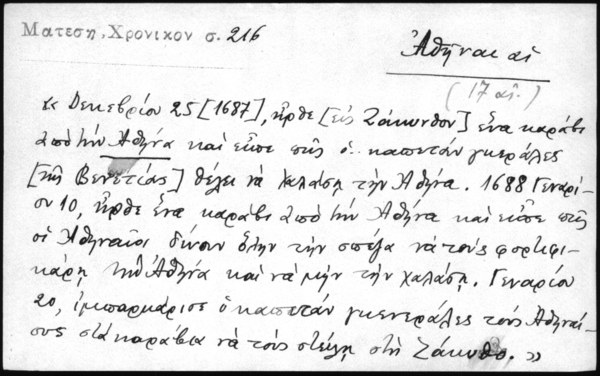 Ματεση, Χρονικον σ. 216
Ἀθῆναι αἱ
(17 αἰ.)
« Δεκεβρίου 25 [1687], ἦρθε [εἰς Ζάκυνθον] ἕνα καράβι
ἀπὸ τὴν Ἀθήνα καὶ εἶπε πῶς ὁ καπετὰν γκεράλες
[τῆς Βενετίας] θέλει νὰ χαλάσῃ τὴν Ἀθήνα. 1688 Γεναρί-
ου 10, ἦρθε ἕνα καράβι ἀπὸ τὴν Ἀθήνα καὶ εἶπε πῶς
οἱ Ἀθηναῖοι δίνουν ὅλην τὴν σπέζα νὰ τοὺς φορτιφι-
κάρῃ τὴν Ἀθήνα καὶ νὰ μὴν τὴν χαλάσῃ. Γεναρίου
20, ἰμπαρκάρισε ὁ καπετὰν γκενεράλες τοὺς Ἀθηναί-
ους στὰ καράβια νὰ τοὺς στείλῃ στὴ Ζάκυθο. »